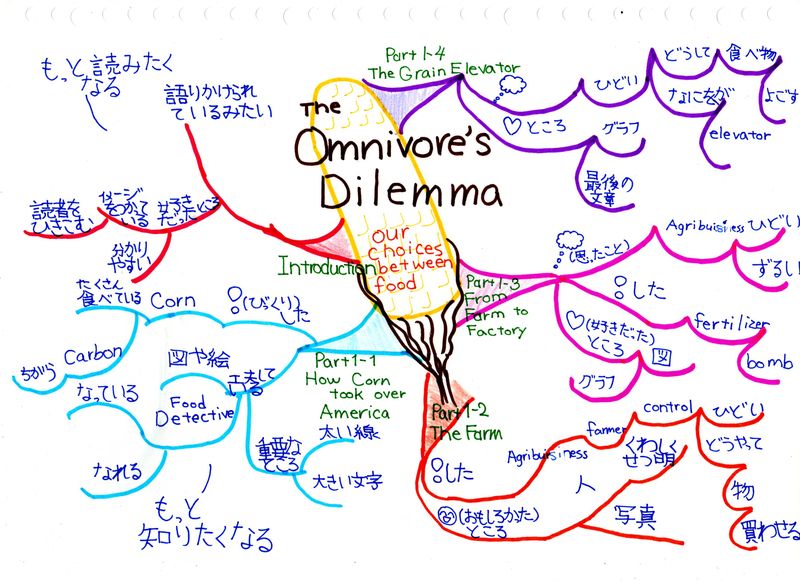 The
Omnivore's
Dilemma
our
choices
between
food
Introduction
語りかけられ
ているみたい
もっと読みたく
なる
好き
だったところ
イメージ
をつかて
いる
読者を
ひきこむ
分かり
やすい
Part 1-1
How Corn
took over
America
(びっくり)
した
Corn
たくさん
食べている
Carbon
ちがう
図や絵
工夫して
いる
Food
Detective
なっている
なれる
重要な
ところ
太い線
大きい文字
もっと
知りたくなる
Part 1-2
The Farm
した
Agribuisiness
farmer
control
ひどい
どうやって
物
買わせる
(おもしろかった)
ところ
人
くわしく
せつ明
写真
Part 1-3
From
Farm to
Factory
(思ったこと)
Agribuisiness
ひどい
ずるい
した
fertilizer
bomb
♡(好きだった)
ところ
図
グラフ
Part 1-4
The Grain Elevator
ひどい
どうして
食べ物
よごす
なにをが
elevator
♡ところ
グラフ
最後の
文章